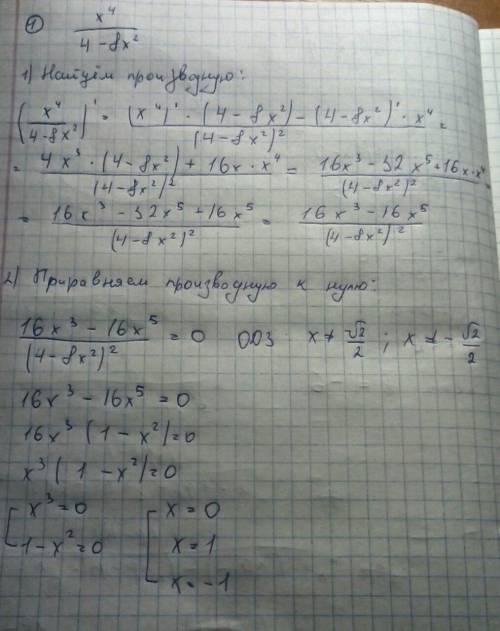 ① x⁴ / (4 - 8x²)
1) Найдём производную:
(x⁴ / (4-8x²))' = ((x⁴)' · (4 - 8x²) - (4 - 8x²)' · x⁴) / (4-8x²)² =
= (4x³ · (4 - 8x²) + 16x · x⁴) / (4-8x²)² = (16x³ - 32x⁵ + 16x · x⁴) / (4-8x²)² =
= (16x³ - 32x⁵ + 16x⁵) / (4-8x²)² = (16x³ - 16x⁵) / (4-8x²)²
2) Приравняем производную к нулю:
(16x³ - 16x⁵) / (4-8x²)² = 0 ОДЗ x ≠ √2/2 ; x ≠ -√2/2
16x³ - 16x⁵ = 0
16x³ (1 - x²) = 0
x³ (1 - x²) = 0
[ x³ = 0 [ x = 0
1 - x² = 0 x = 1
x = -1